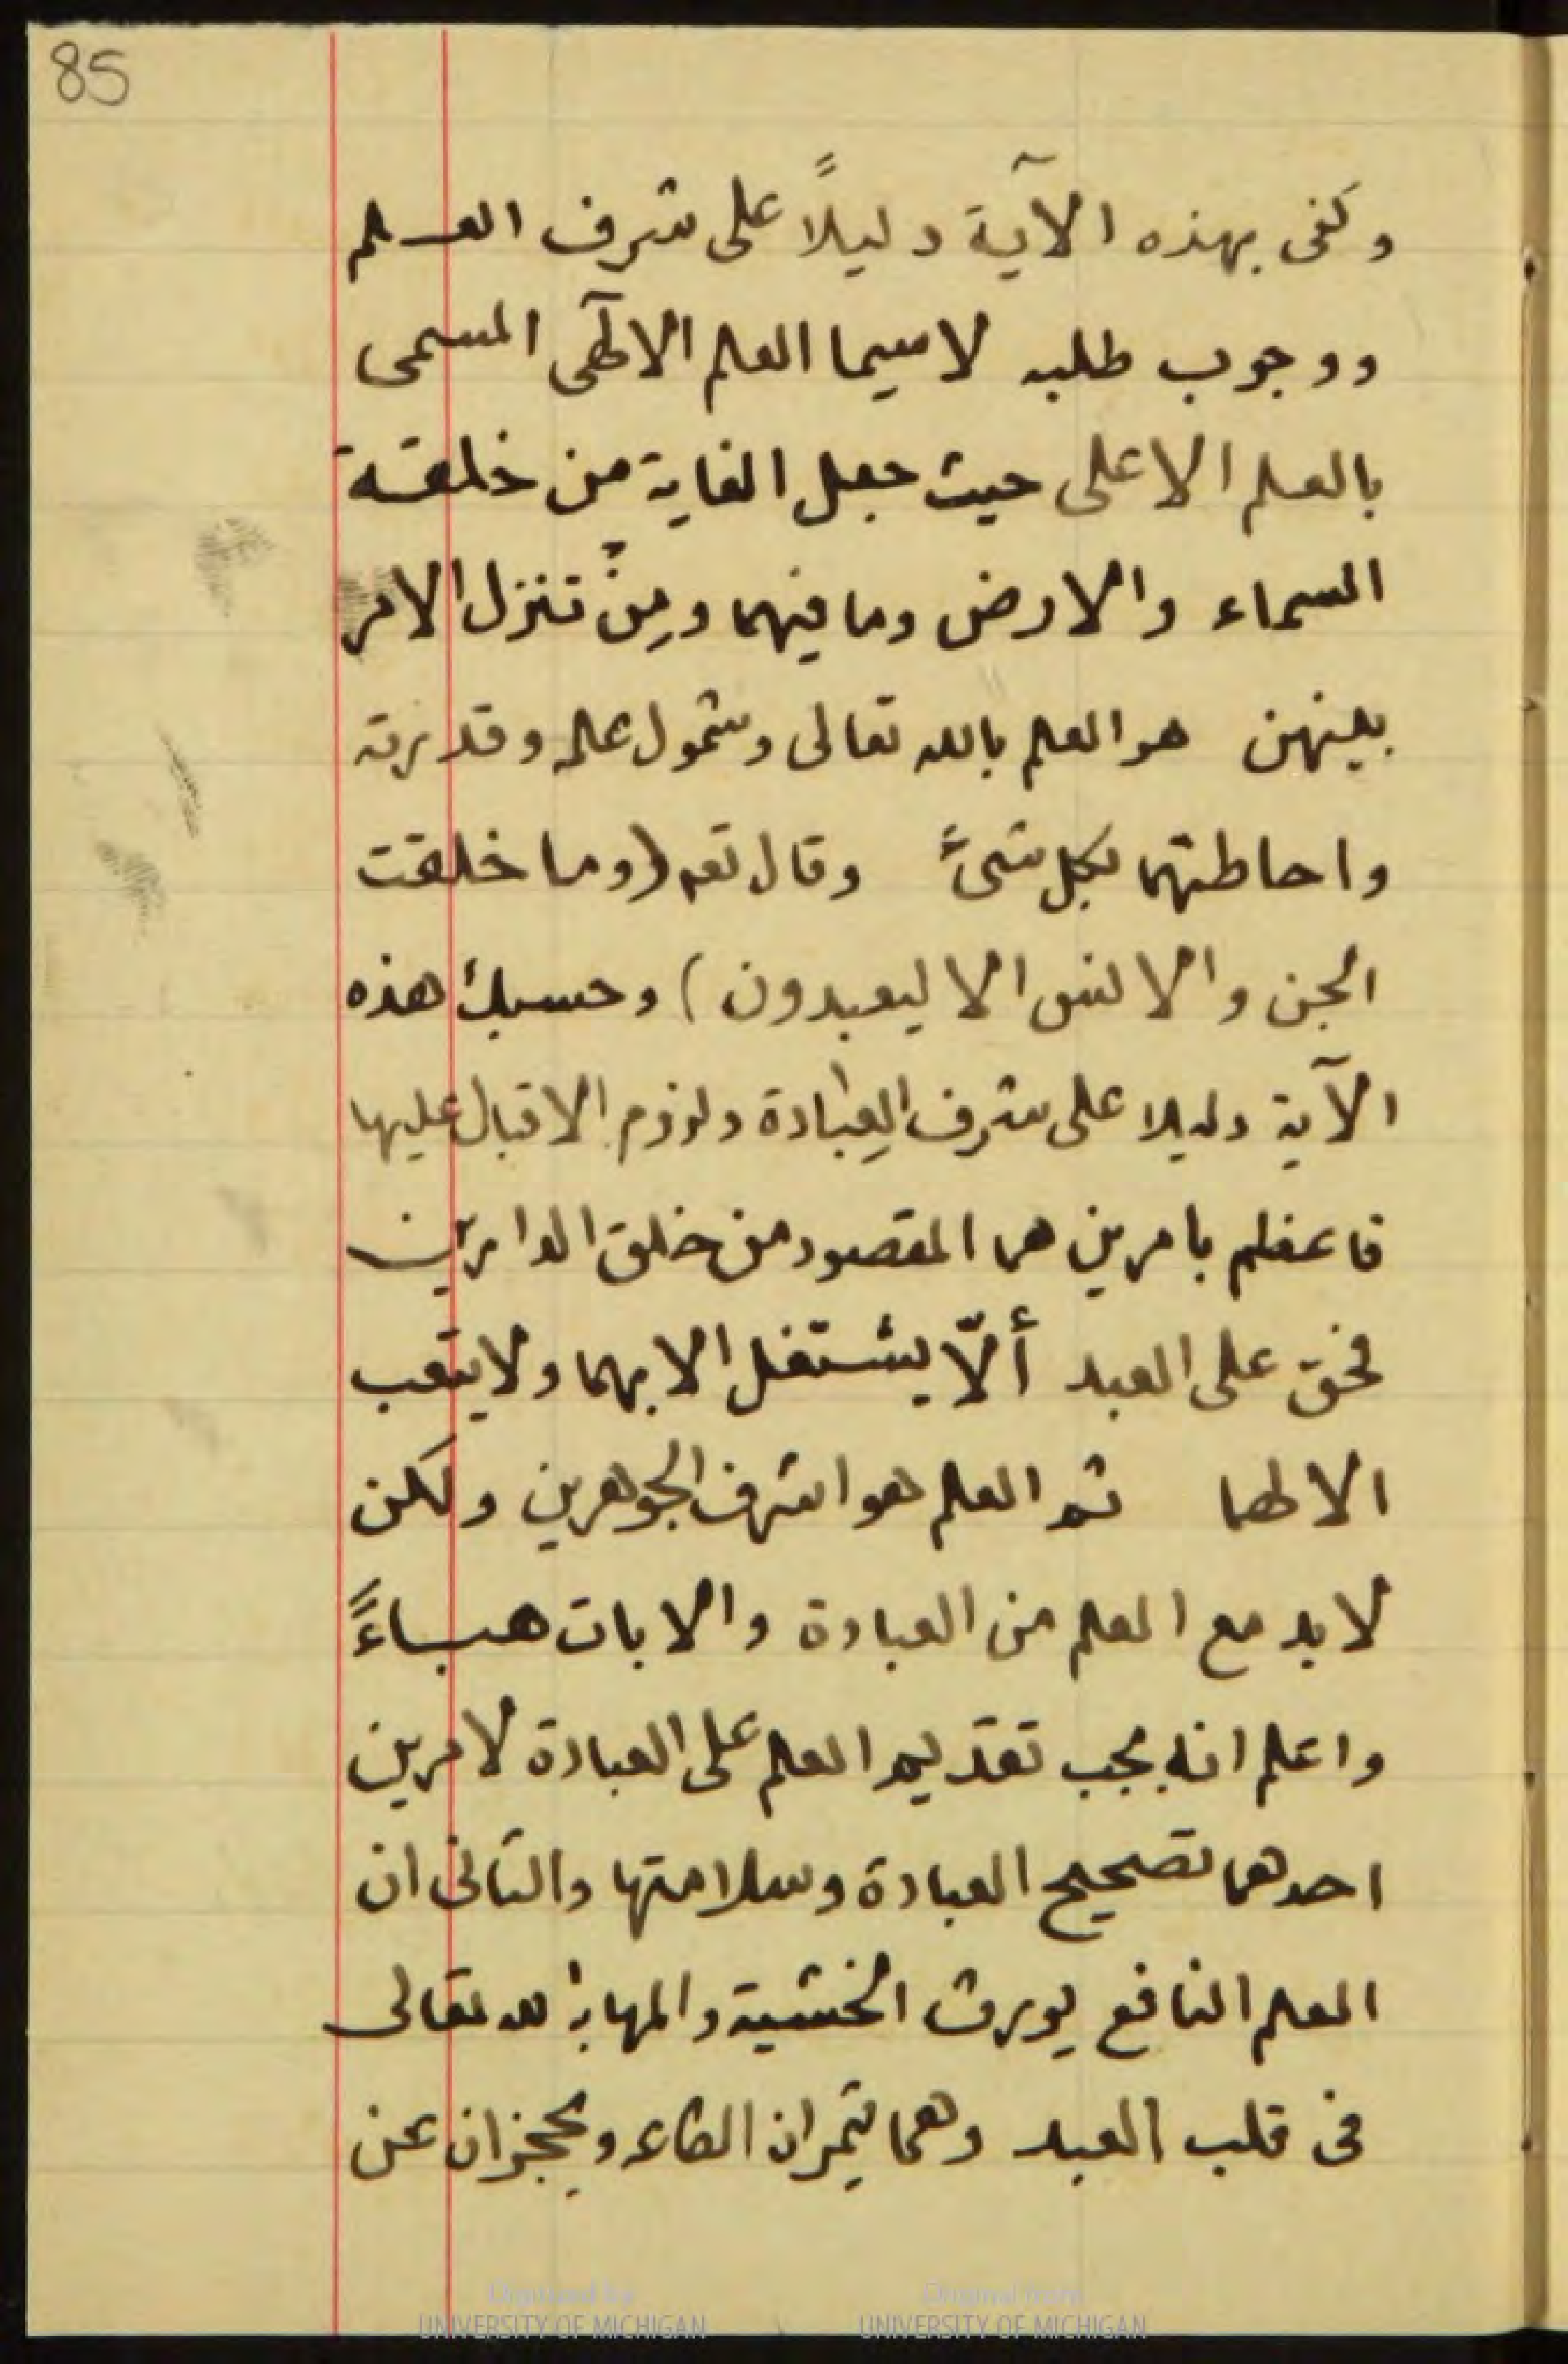 85
وكفى بهذه الآية دليلاً على شرف العلم
ووجوب طلبه لاسيما العلم الالٓهى المسمى
بالعلم الاعلى حيث جعل الغاية من خلقة
السماء والارض وما فيهما ومن تنزل الامر
بينهن هو العلم بالله تعالى وشمول علمه وقدرته
واحاطتهما بكل شئ وقال تعه (وما خلقت
الجن والانس الا ليعبدون) وحسبك هذه
الآية دليلا على شرف العبادة ولزوم الاقبال عليها
فاعظم بامرين هما المقصود من خلق الدارين
فحق على العبد ألاّ يشتغل الا بهما ولا يتعب
الا لهما ثم العلم هو اشرف الجوهرين ولكن
لا بد مع العلم من العبادة والا بات هباءً
واعلم انه يجب تقديم العلم على العبادة لامرين
احدهما تصحيح العبادة وسلامتها والثانى ان
العلم النافع يورث الخشية والمهابة لله تعالى
فى قلب العبد وهما يثمران الطاعه ويحجزان عن
Digitized by
UNIVERSITY OF MICHIGAN
Original from
UNIVERSITY OF MICHIGAN